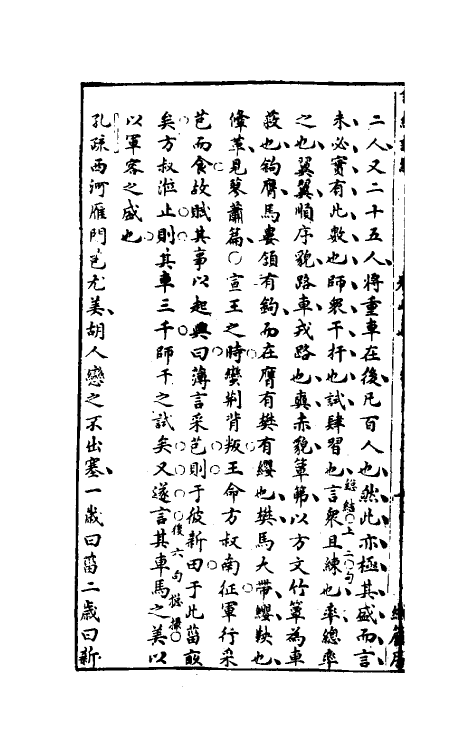 二人又二十五人將重車在後凡百人也然此亦極其盛而言
未必實有此數也師衆干扞也試肄習也言衆且練也總結上二句率總率
之也翼翼順序貌路車戎路也奭赤貌簟笰以方文竹簟為車
蔽也鉤膺馬婁頷有鉤而在膺有樊有纓也樊馬大帶纓鞅也
鞗革見蓼蕭篇宣王之時蠻荆背叛王命方叔南征軍行采
芑而食故賦其事以起興曰薄言采芑則于彼新田于此菑畝
矣方叔涖止則其車三千師干之試矣又遂言其車馬之美以後六句
以軍容之盛也
孔疏西河雁門芑尤美胡人戀之不出塞一歲曰菑二歲曰新